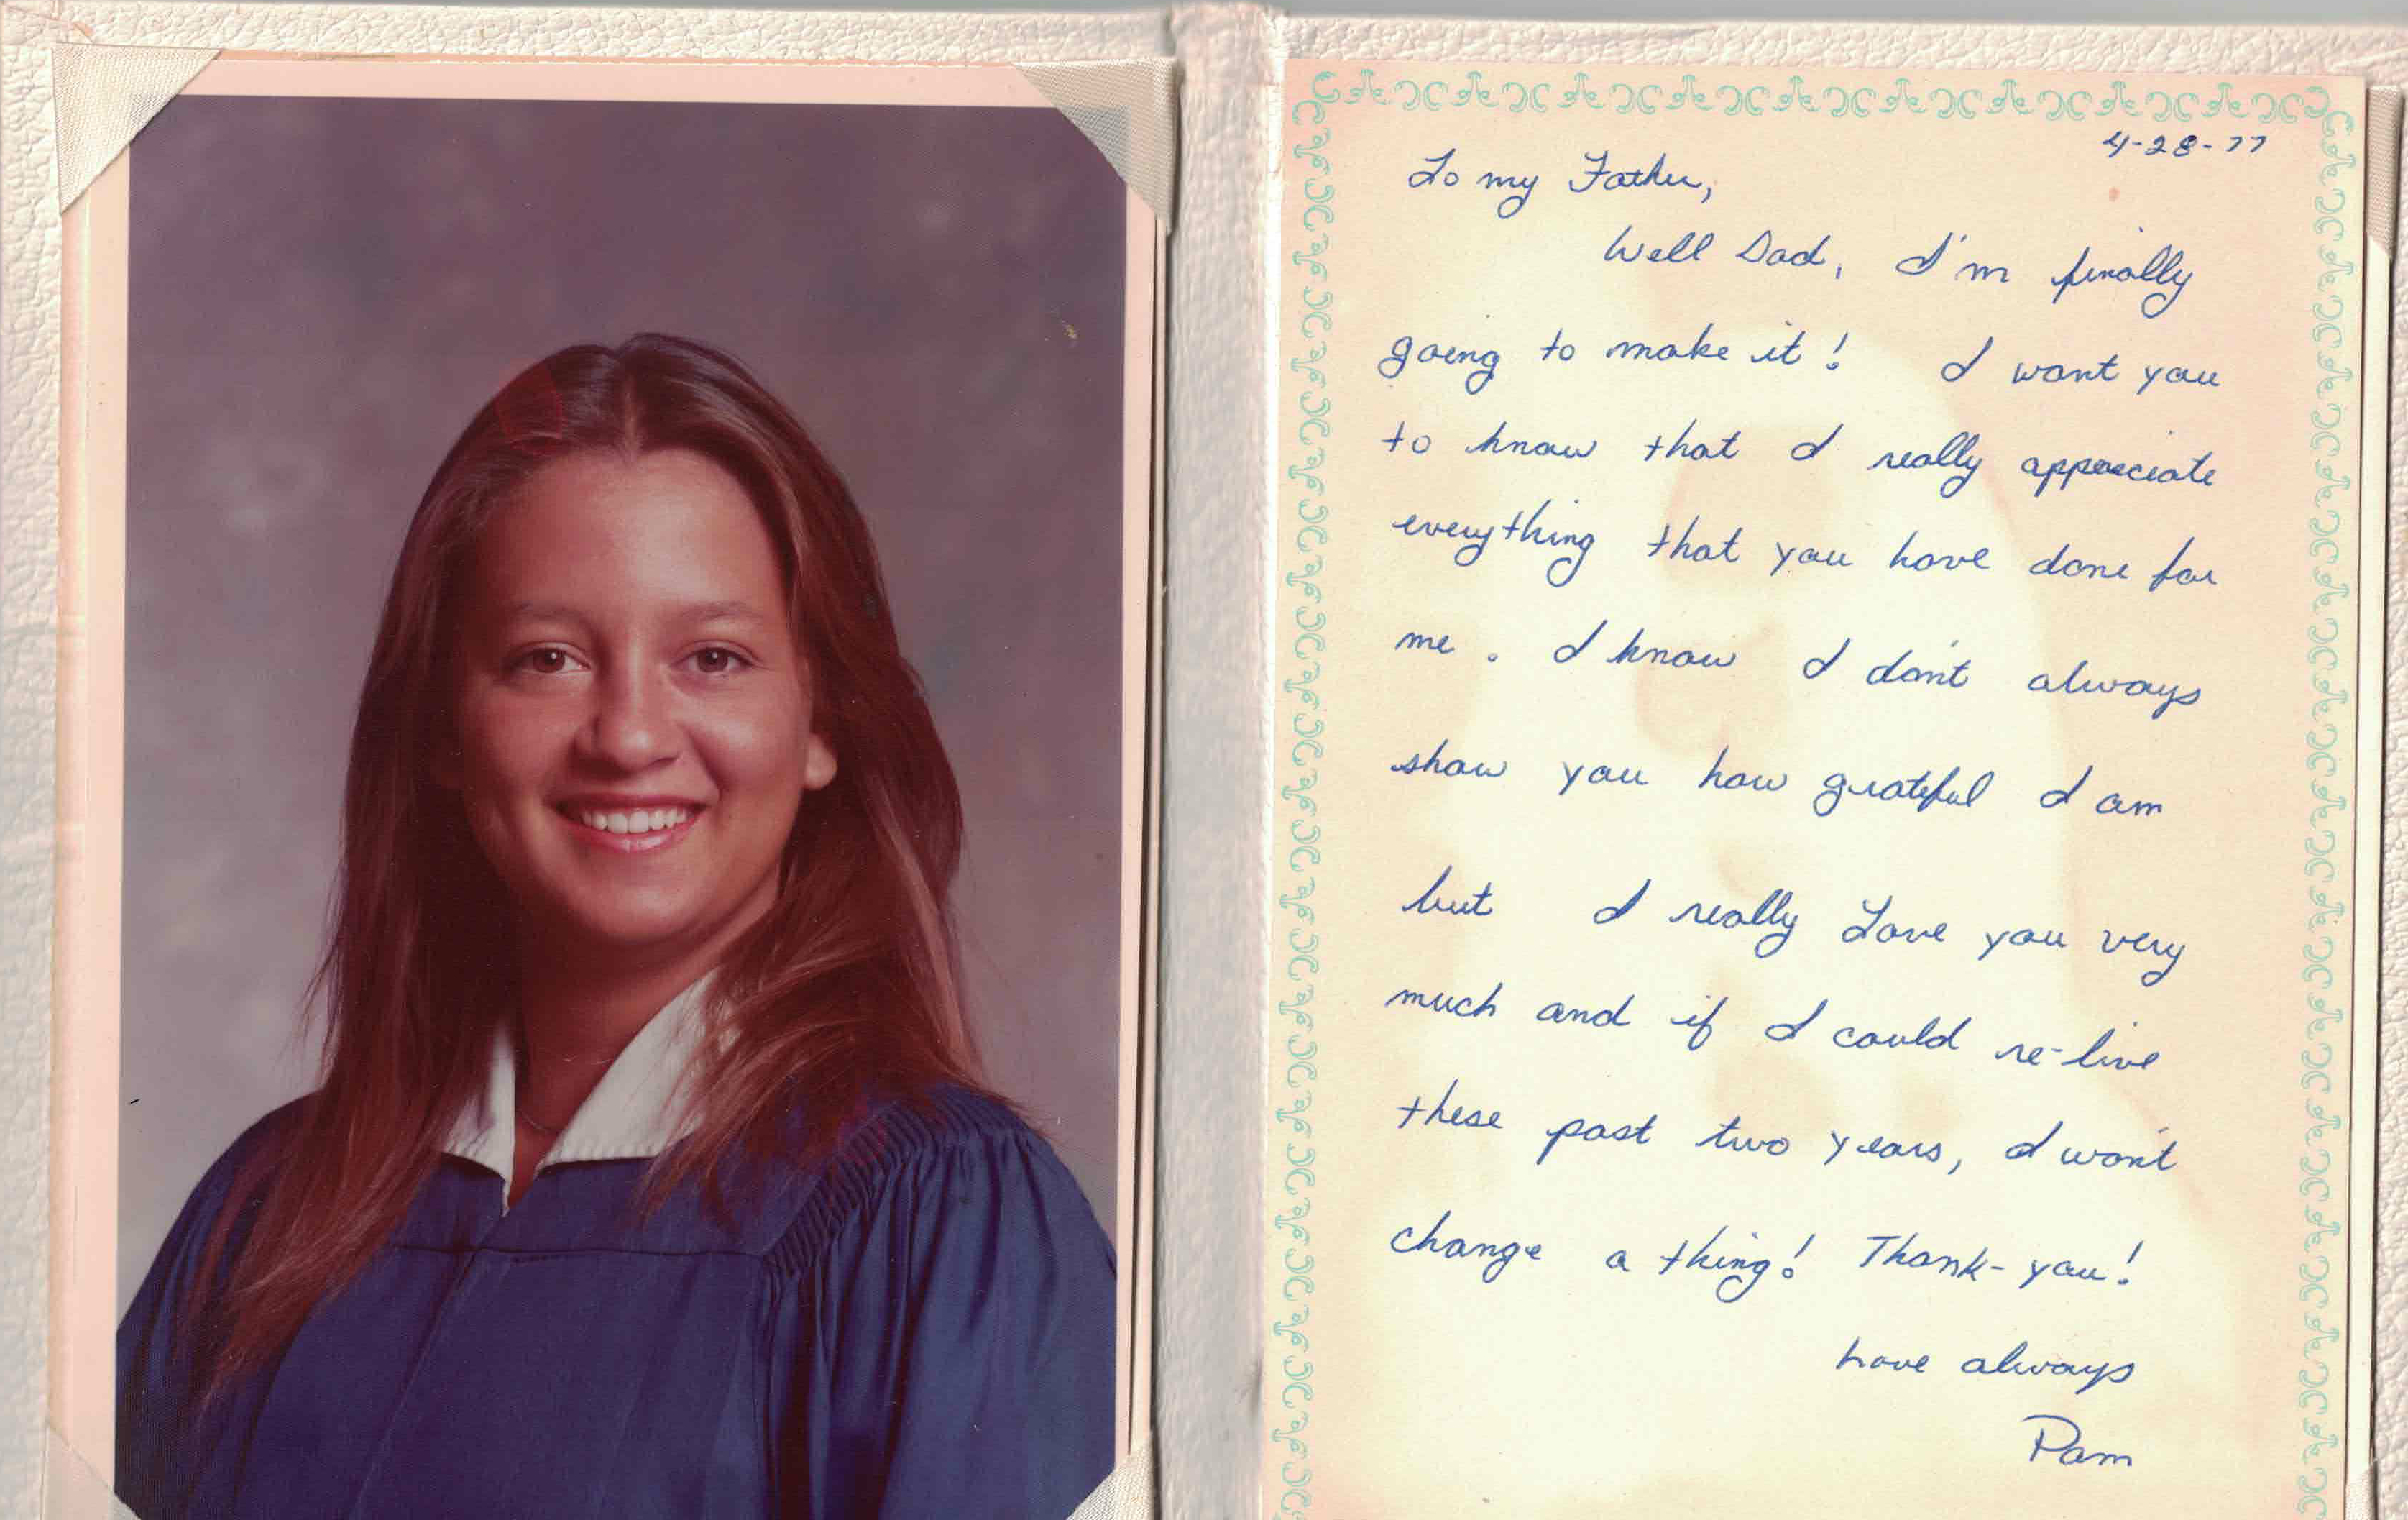 4-28-77
To my Father,
Well Dad, I'm finally
going to make it! I want you
to know that I really appreciate
everything that you have done for
me. I know I don't always
show you how grateful I am
but I really Love you very
much and if I could re-live
these past two years, I won't
change a thing! Thank-you!
Love always
Pam